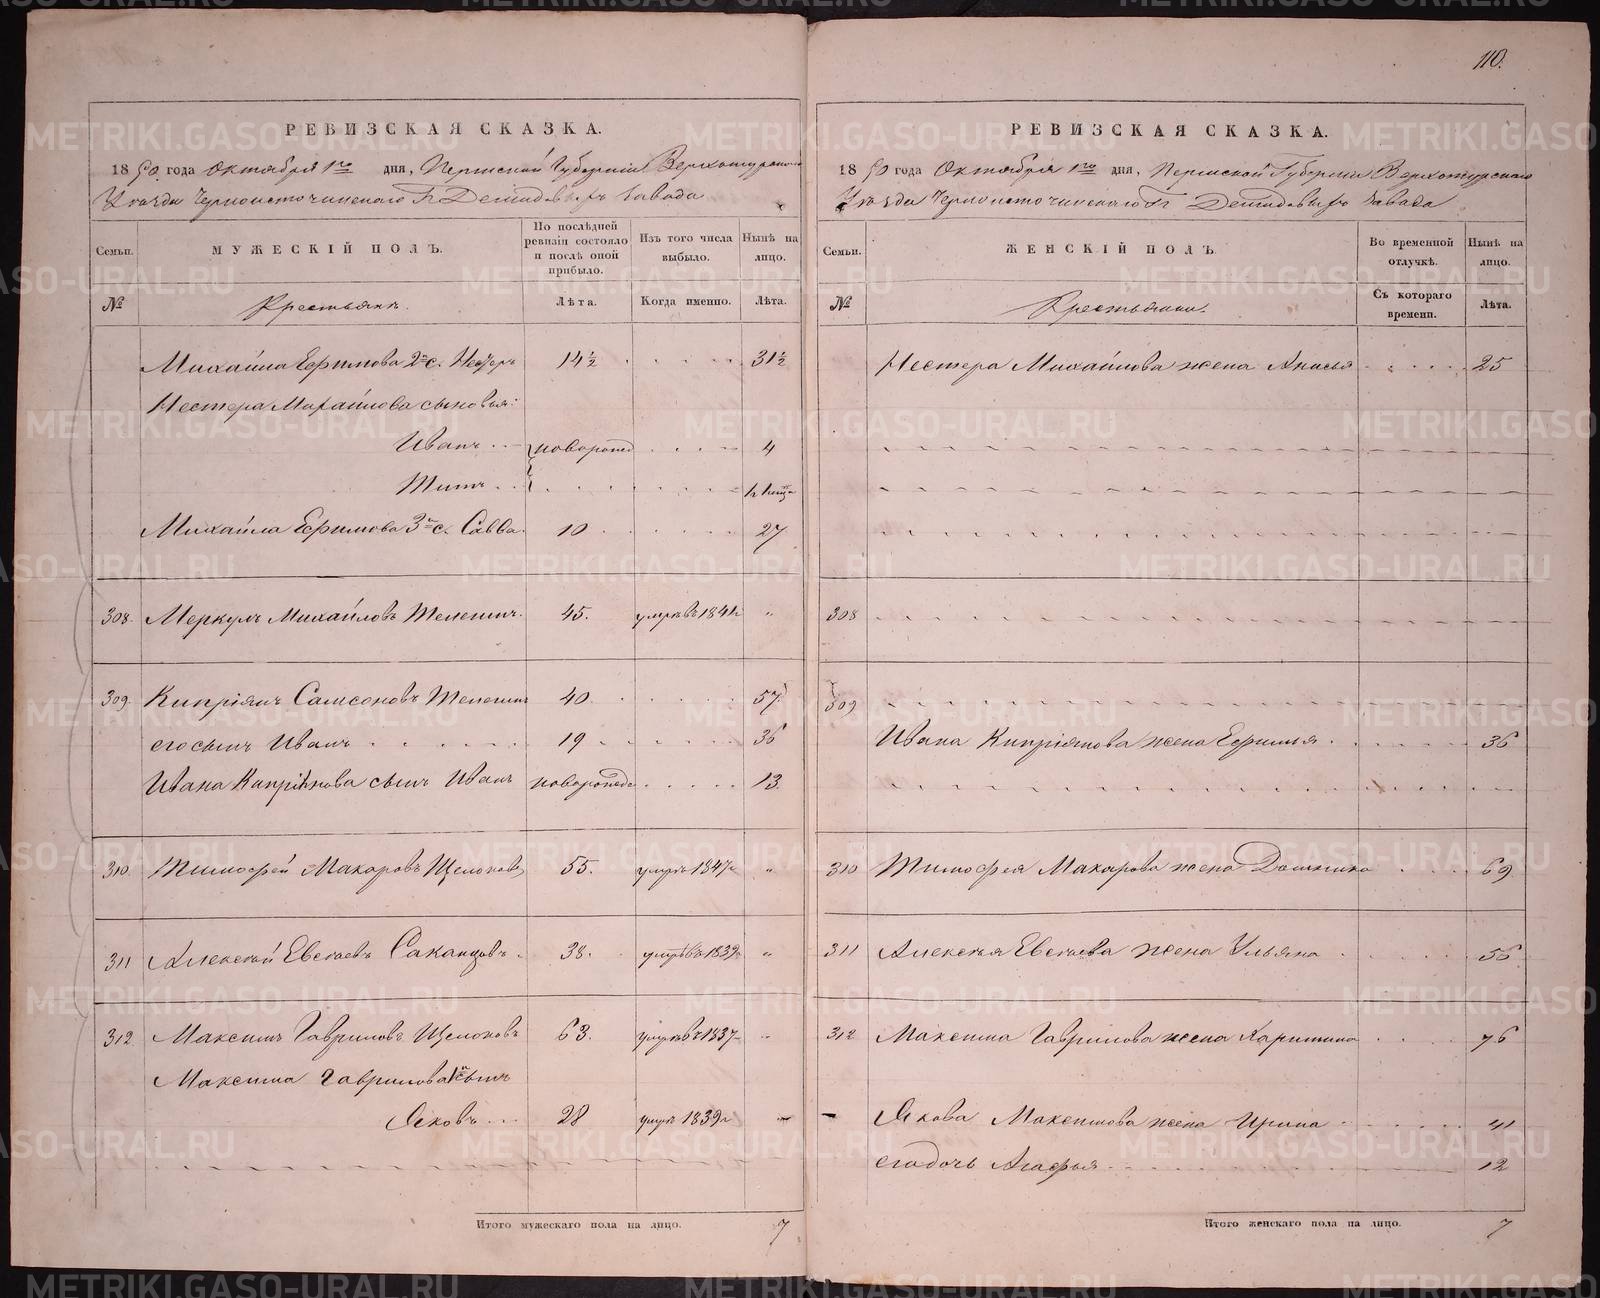 110.
РЕВИЗСКАЯ СКАЗКА.
1850 года Октября 1го дня, Пермской Губерніи Верхотурскаго
Уезда Черноисточинскаго Г. Демидовыхъ Завода
Семьи. МУЖЕСКІЙ ПОЛЪ. По послѣдней ревизіи состояло и послѣ оной прибыло. Изъ того числа выбыло. Нынѣ на лицо.
№ Крестьянъ. Лѣта. Когда именно. Лѣта.
Михайла Ефимова 2й с. Нестеръ 14½ 31½
Нестера Михайлова сыновья:
Иванъ новорожд 4
Титъ
Михайла Ефимова 3й с. Савва 10 27
308. Меркулъ Михайловъ Телегинъ. 45. умръ въ 1841
309. Кипріянъ Самсоновъ Телегинъ 40. 57
его сынъ Иванъ 19 36
Ивана Кипріянова сынъ Иванъ новорожде 13.
310. Тимофей Макаровъ Щелоковъ 55. умръ 1847
311 Алексѣй Евсѣевъ Саканцовъ. 38. умръ въ 1839
312 Максимъ Гавриловъ Щелоковъ 63. умръ въ 1837
Максима Гаврилова 1й сынъ
Яковъ 28 умръ 1839
Итого мужескаго пола на лицо. 7
РЕВИЗСКАЯ СКАЗКА.
1850 года Октября 1го дня, Пермской Губерніи Верхотурскаго
Уезда Черноисточинскаго Г. Демидовыхъ Завода
Семьи. ЖЕНСКІЙ ПОЛЪ. Во временной отлучкѣ. Нынѣ на лицо.
№ Крестьянки. Съ котораго времени. Лѣта.
Нестера Михайлова жена Анисья 25
308
309
Ивана Кипріянова жена Ефимья 36
310 Тимофея Макарова жена Домникия 69
311 Алексѣя Евсѣева жена Ульяна 56
312 Максима Гаврилова жена Харитина 76
Якова Максимова жена Ирина 41
его дочь Агафья 12
Итого женскаго пола на лицо. 7
METRIKI.GASO-URAL.RU